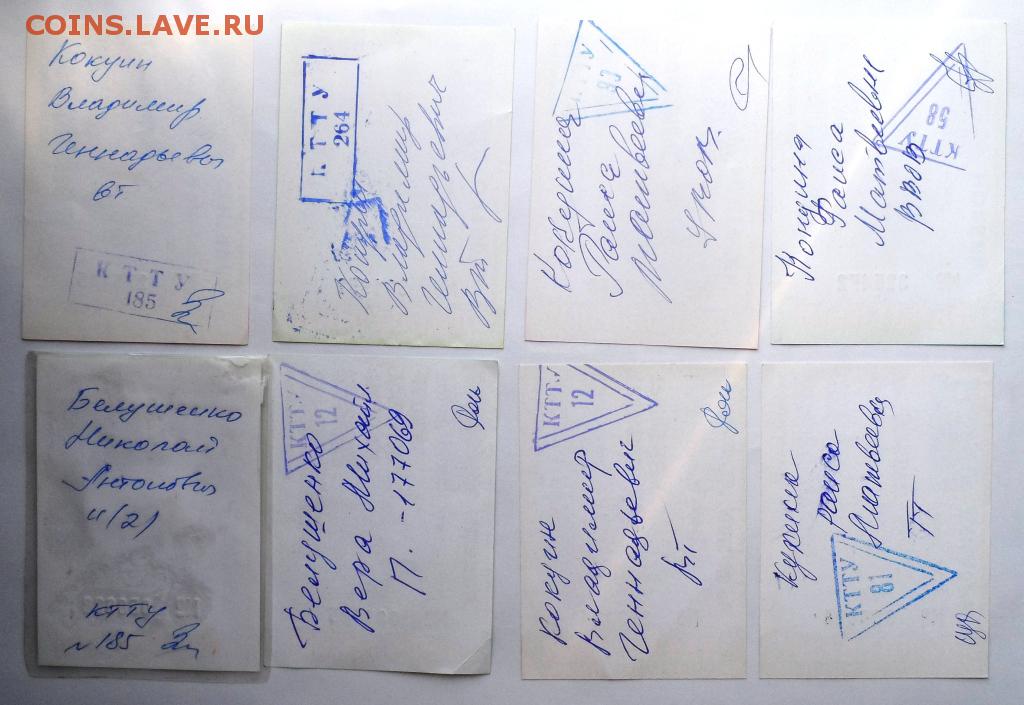 COINS.LAVE.RU
Кокуин
Владимир
Геннадьевич
ВТ
КТТУ
185
КТТУ
264
Владимир
Геннадьевич
ВТ
КТТУ
83
Раиса
Матвеевна
КТТУ
58
Кокуина
Раиса
Матвеевна
ВВОВ
Белушенко
Николай
Антонович
И(2)
КТТУ
№185
КТТУ
12
Белушенко
Вера Михайл
П. -177069
КТТУ
12
Кокуин
Владимир
Геннадьевич
ВТ
Раиса
Матвеевна
ТТ
КТТУ
81